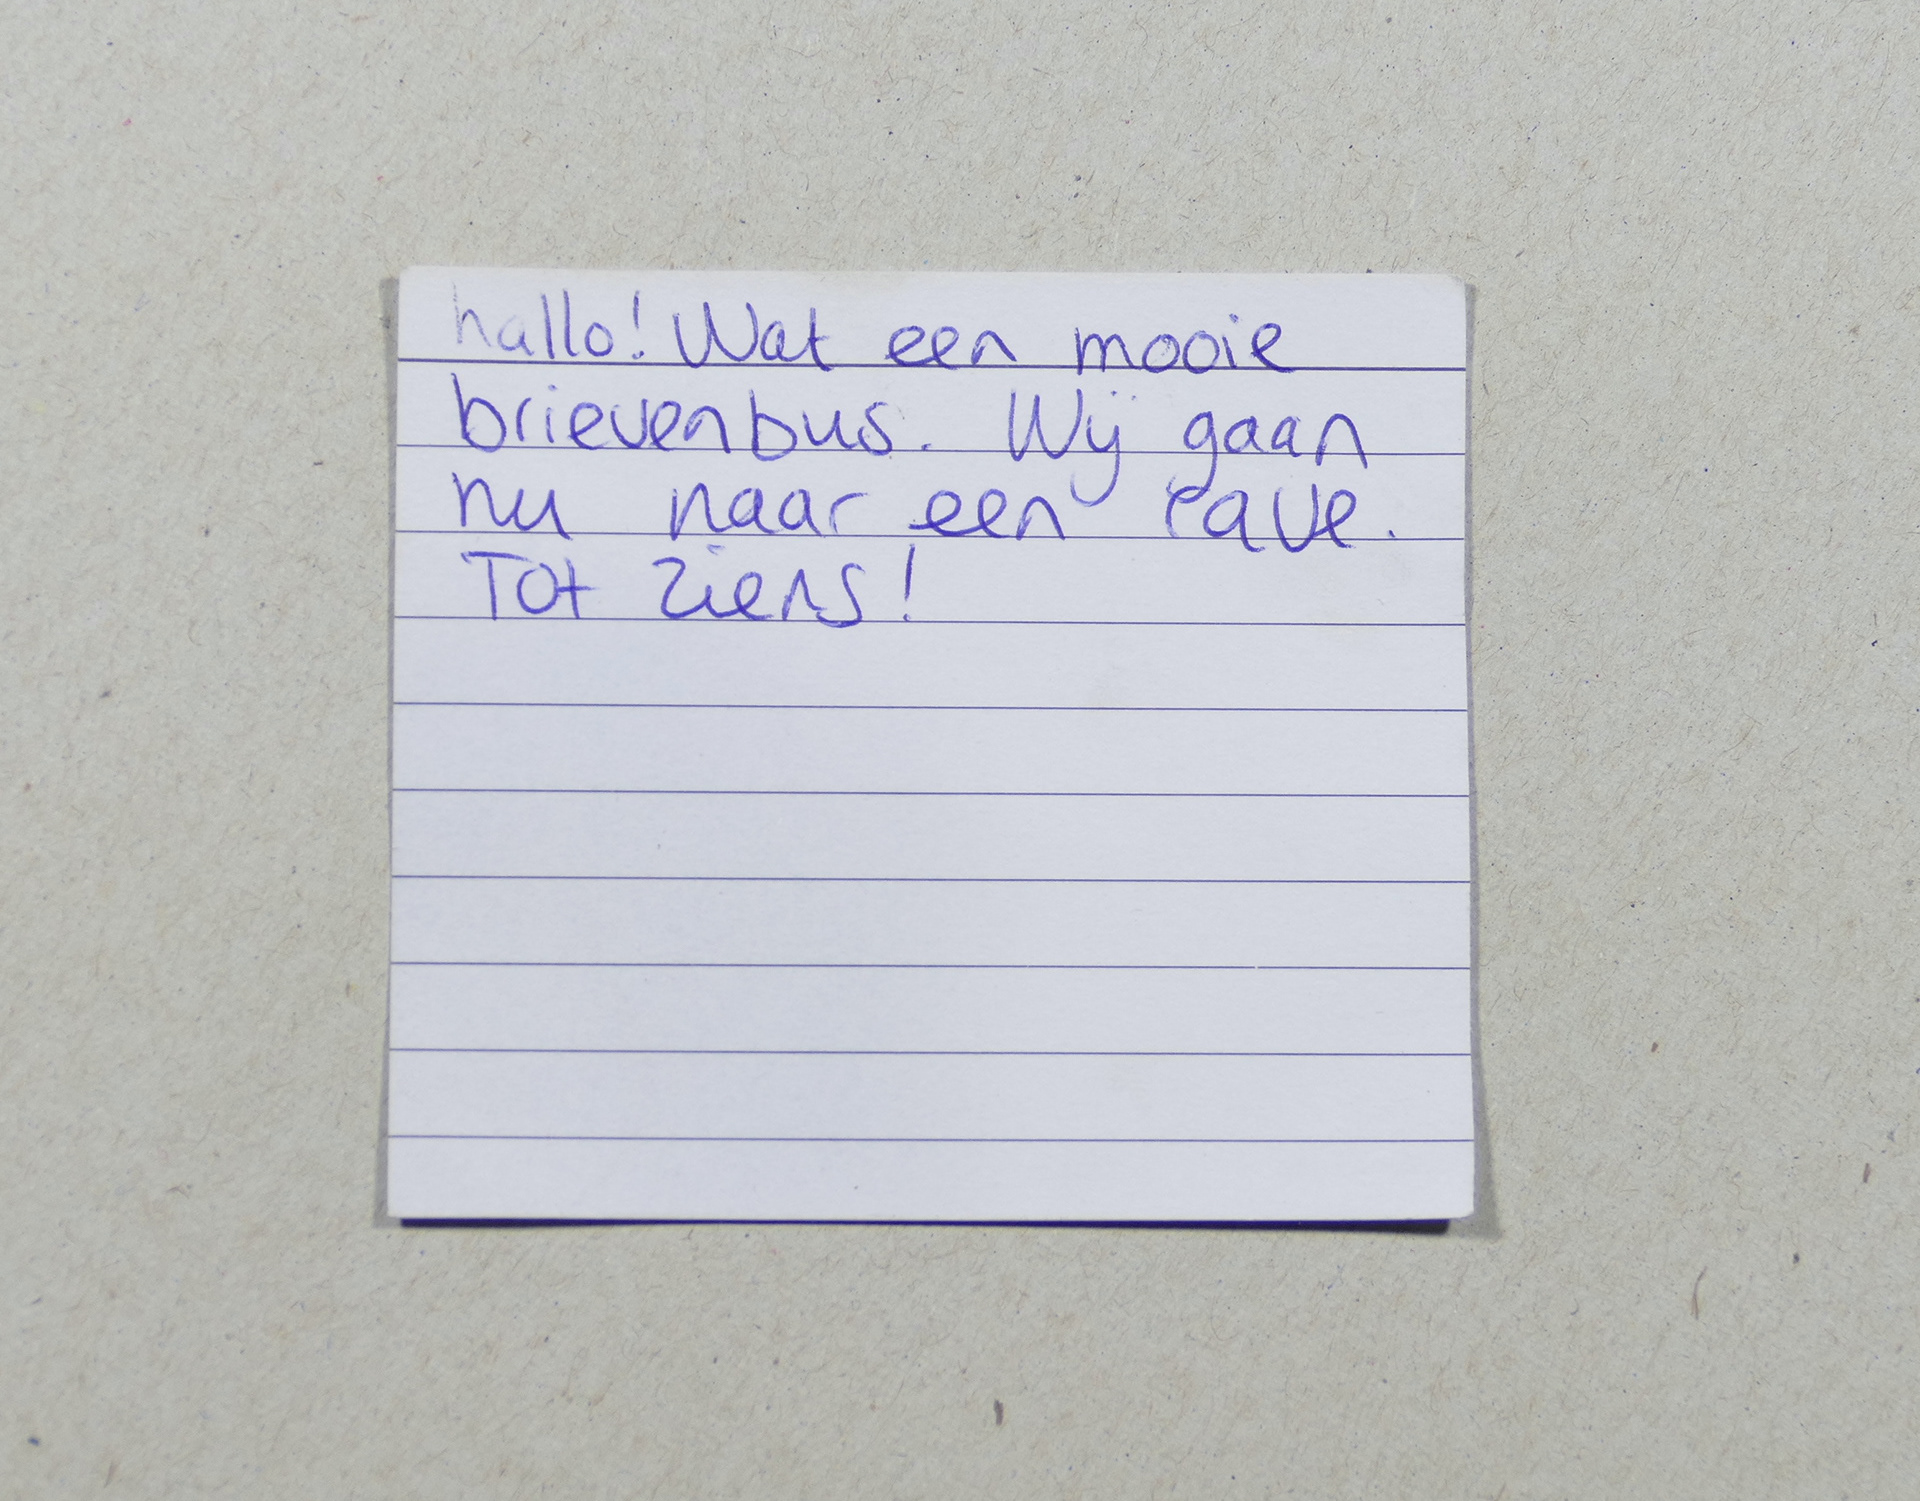 hallo! Wat een mooie
brievenbus. Wij gaan
nu naar een rave.
Tot ziens!